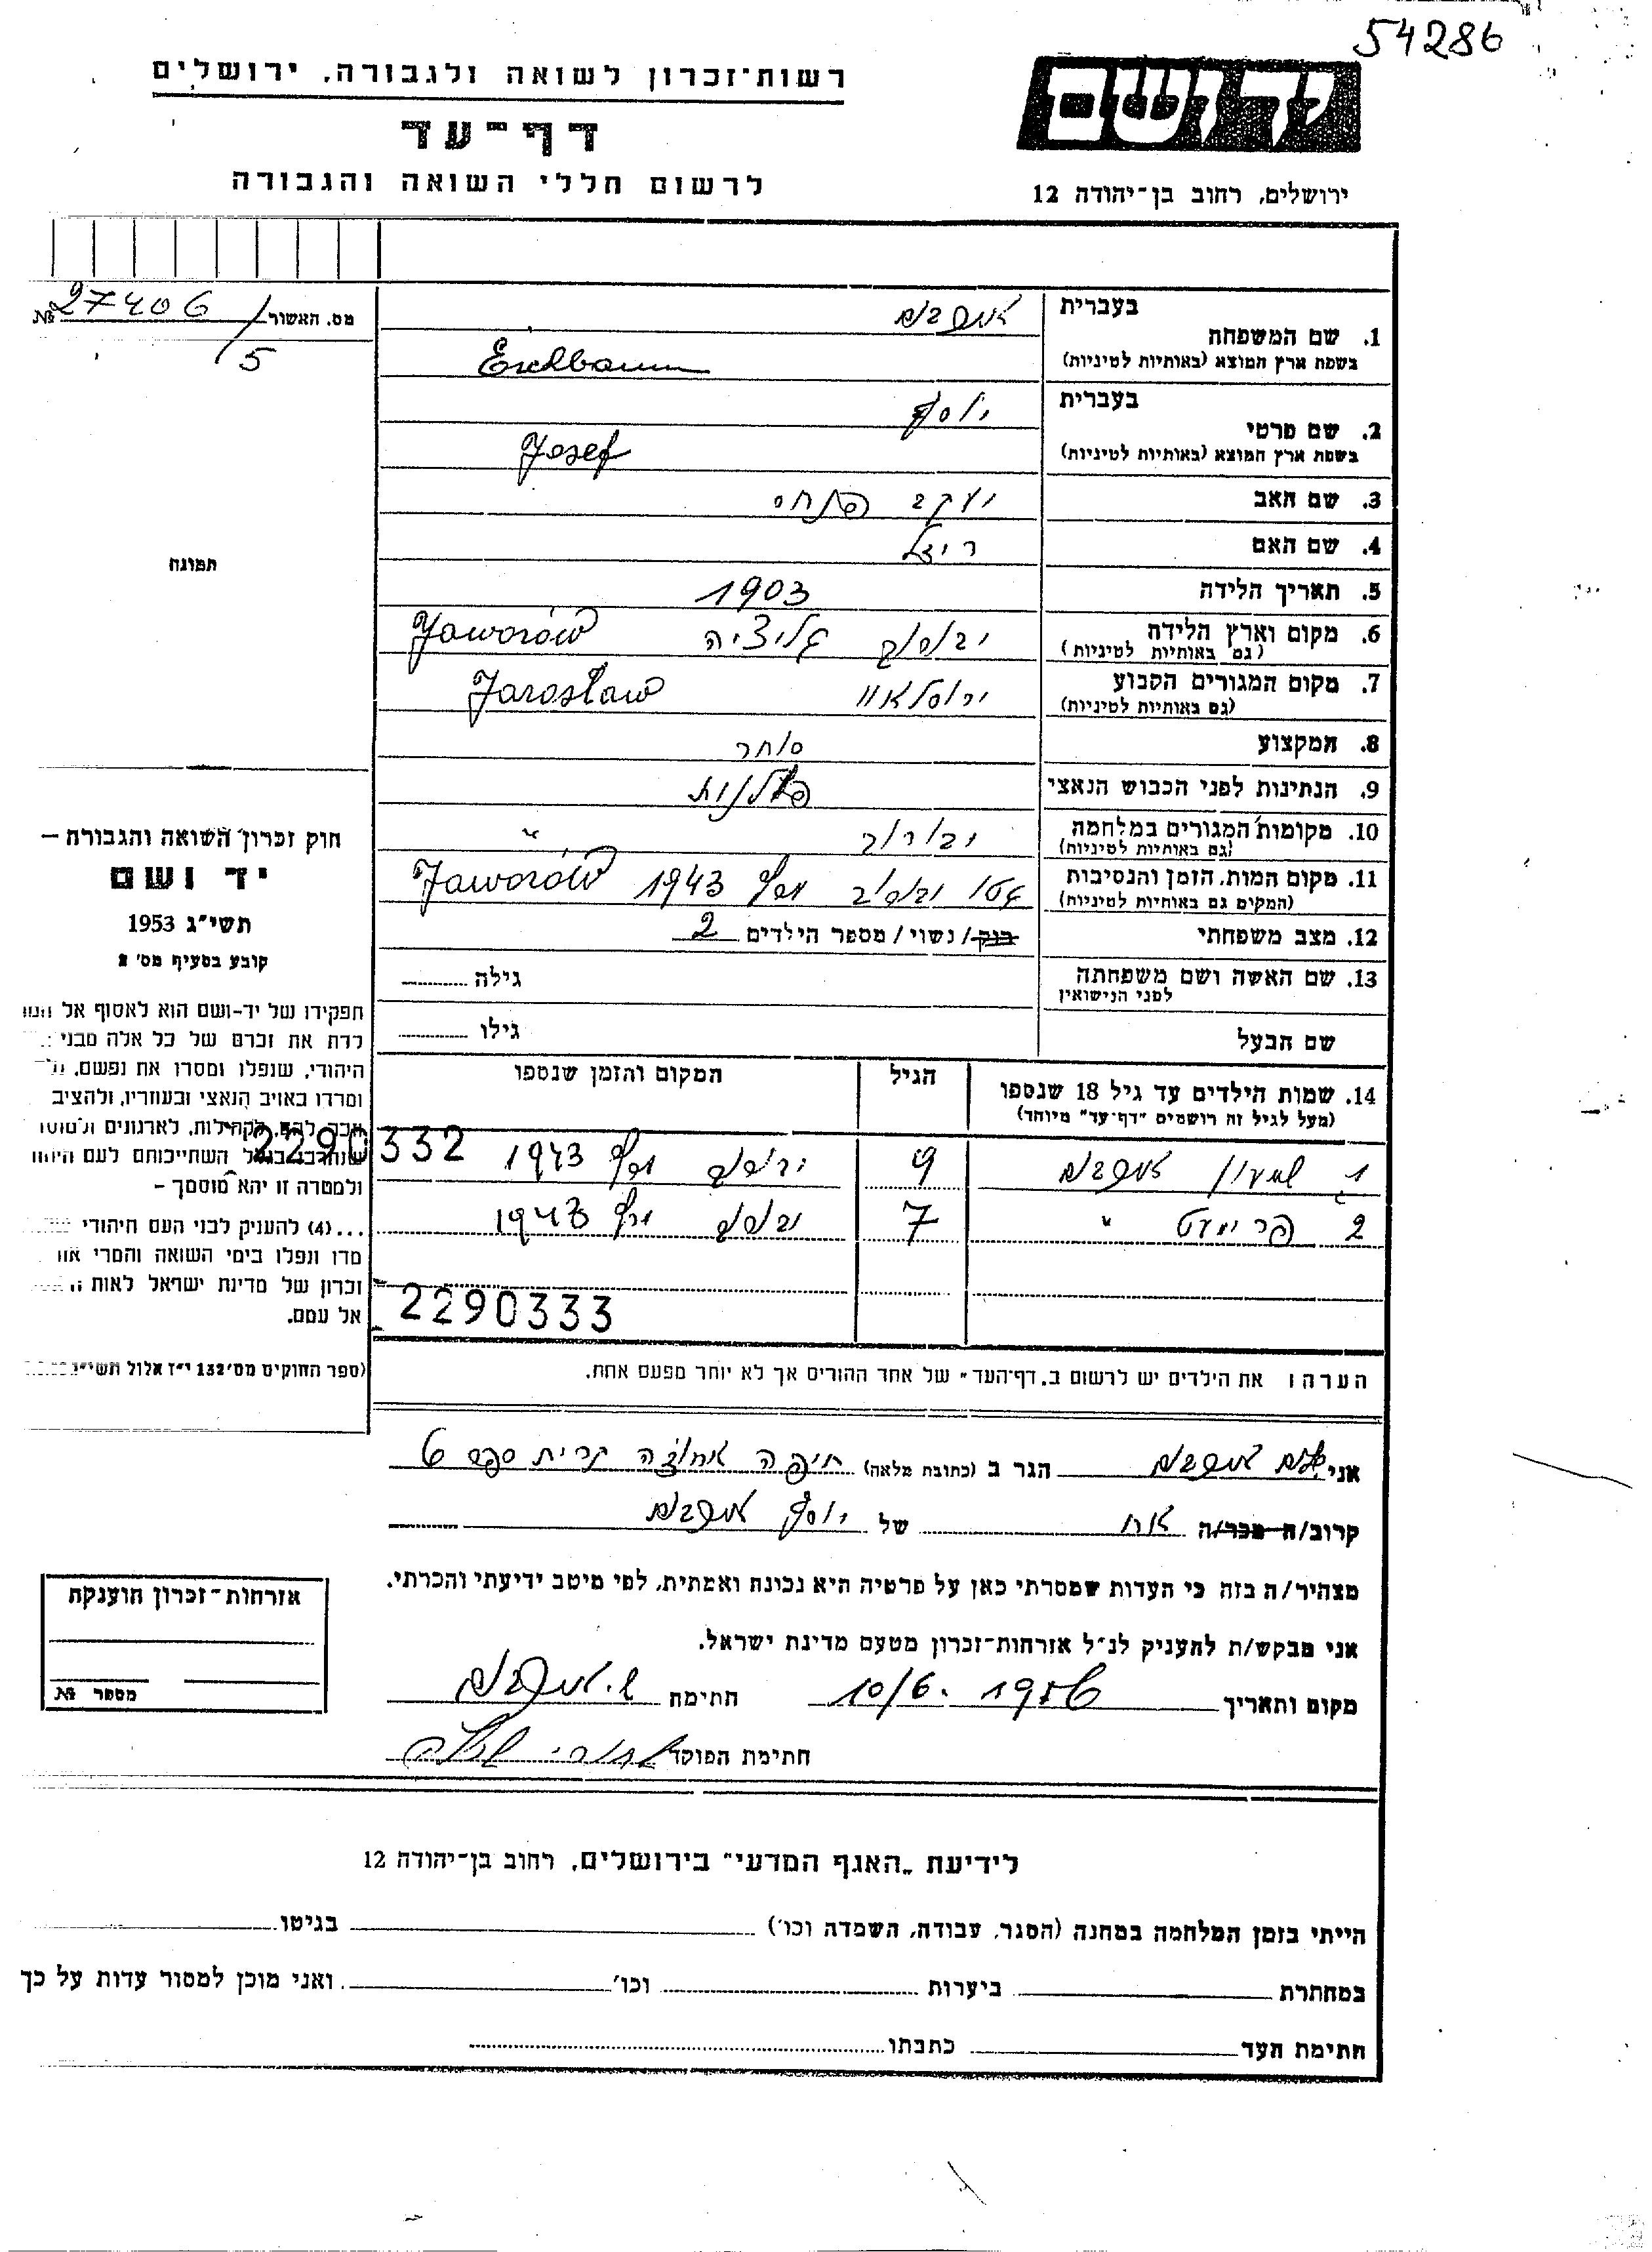 54286
רשות־זכרון לשואה ולגבורה, ירושלים
יד ושם
דף־עד
לרשום חללי השואה והגבורה
ירושלים, רחוב בן־יהודה 12
מס. האשור № 27406/5
בעברית
1. שם המשפחה
בשפת ארץ המוצא (באותיות לטיניות) Eichbaum
בעברית יוסף
2. שם פרטי
בשפת ארץ המוצא (באותיות לטיניות) Josef
3. שם האב יעקב
4. שם האם
5. תאריך הלידה 1903
6. מקום וארץ הלידה גליציה Jaworów
(גם באותיות לטיניות)
7. מקום המגורים הקבוע ירוסלאוו Jarosław
(גם באותיות לטיניות)
8. המקצוע סוחר
9. הנתינות לפני הכבוש הנאצי פולנית
10. מקומות המגורים במלחמה יבורוב "
(גם באותיות לטיניות)
11. מקום המות, הזמן והנסיבות גטו 1943 Jaworów
(המקום גם באותיות לטיניות)
12. מצב משפחתי רווק/נשוי/מספר הילדים 2
13. שם האשה ושם משפחתה גילה
לפני הנישואין
שם הבעל גילו
14. שמות הילדים עד גיל 18 שנספו הגיל המקום והזמן שנספו
(מעל לגיל זה רושמים "דף־עד" מיוחד)
1 שמעון 9 1943 2290332
2 " 7 1943
2290333
תמונה
חוק זכרון השואה והגבורה –
יד ושם
תשי"ג 1953
קובע בסעיף מס' 2
תפקידו של יד-ושם הוא לאסוף אל
לדת את זכרם של כל אלה מבני
היהודי, שנפלו ומסרו את נפשם,
ומרדו באויב הנאצי ובעוזריו, ולהציב
לארגונים
השתייכותם לעם
ולמטרה זו יהא מוסמך –
...(4) להעניק לבני העם היהודי
מדו ונפלו בימי השואה והמרי
זכרון של מדינת ישראל לאות
אל עמם.
(ספר החוקים מס' 132 י"ז אלול
הערה: את הילדים יש לרשום ב„דף־העד" של אחד ההורים אך לא יותר מפעם אחת.
אני הגר ב (כתובת מלאה) חיפה אחוזה קרית ספר
קרוב/ה מכר/ה אח של יוסף
מצהיר/ה בזה כי העדות שמסרתי כאן על פרטיה היא נכונה ואמתית, לפי מיטב ידיעתי והכרתי.
אני מבקש/ת להעניק לנ"ל אזרחות־זכרון מטעם מדינת ישראל.
מקום ותאריך 10/6. 1956 חתימה
חתימת הפוקד
אזרחות־זכרון הוענקה
מספר №
לידיעת „האגף המדעי" בירושלים, רחוב בן־יהודה 12
הייתי בזמן המלחמה במחנה (הסגר, עבודה, השמדה וכו') בגיטו
במחתרת ביערות וכו' ואני מוכן למסור עדות על כך
חתימת העד כתבתו